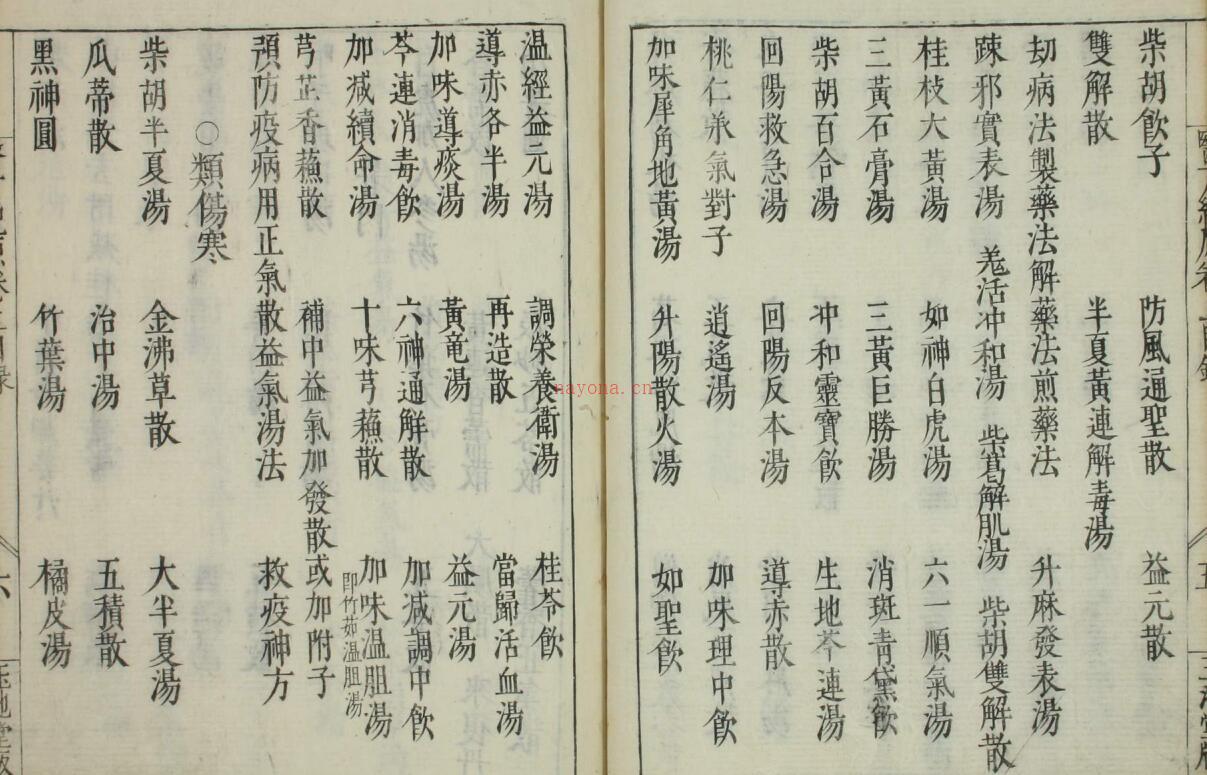 柴胡飲子　防風通聖散　益元散
雙解散　半夏黃連解毒湯
劫病法製藥法解藥法煎藥法　升麻發表湯
踈邪實表湯　羗活冲和湯　柴葛解肌湯　柴胡雙解散
桂枝大黃湯　如神白虎湯　六一順氣湯
三黃石膏湯　三黃巨勝湯　消斑青黛飲
柴胡百合湯　冲和靈寶飲　生地芩連湯
回陽救急湯　回陽反本湯　導赤散
桃仁承氣對子　逍遙湯　加味理中飲
加味犀角地黃湯　升陽散火湯　如聖飲
温經益元湯　調榮養衛湯　桂苓飲
導赤各半湯　再造散　當歸活血湯
加味導痰湯　黃竜湯　益元湯
芩連消毒飲　六神通解散　加減調中飲
加減續命湯　十味芎蘓散　加味温胆湯
即竹茹温胆湯
芎芷香蘓散　補中益氣加發散或加附子
預防疫病用正氣散益氣湯法　救疫神方
○類傷寒
柴胡半夏湯　金沸草散　大半夏湯
瓜蒂散　治中湯　五積散
黑神圓　竹葉湯　橘皮湯
五
六
nayona.cn